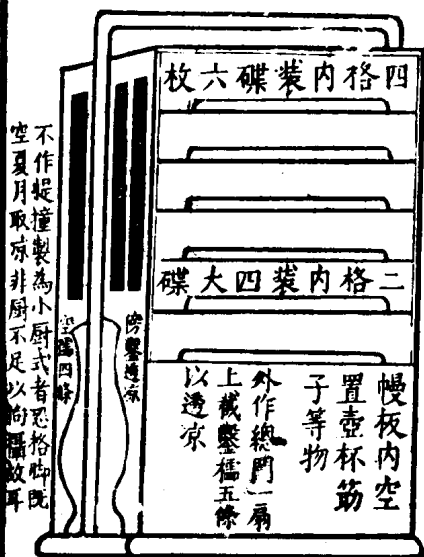 四格内裝碟六枚
二格内裝四大碟
幔板内空
置壺杯筯
子等物
外作總門一扇
上截鑿櫺五條
以透凉
傍鑿透凉
空櫺四條
不作提撞製為小厨式者恐格既
空夏月取凉非厨不足以向攝故耳